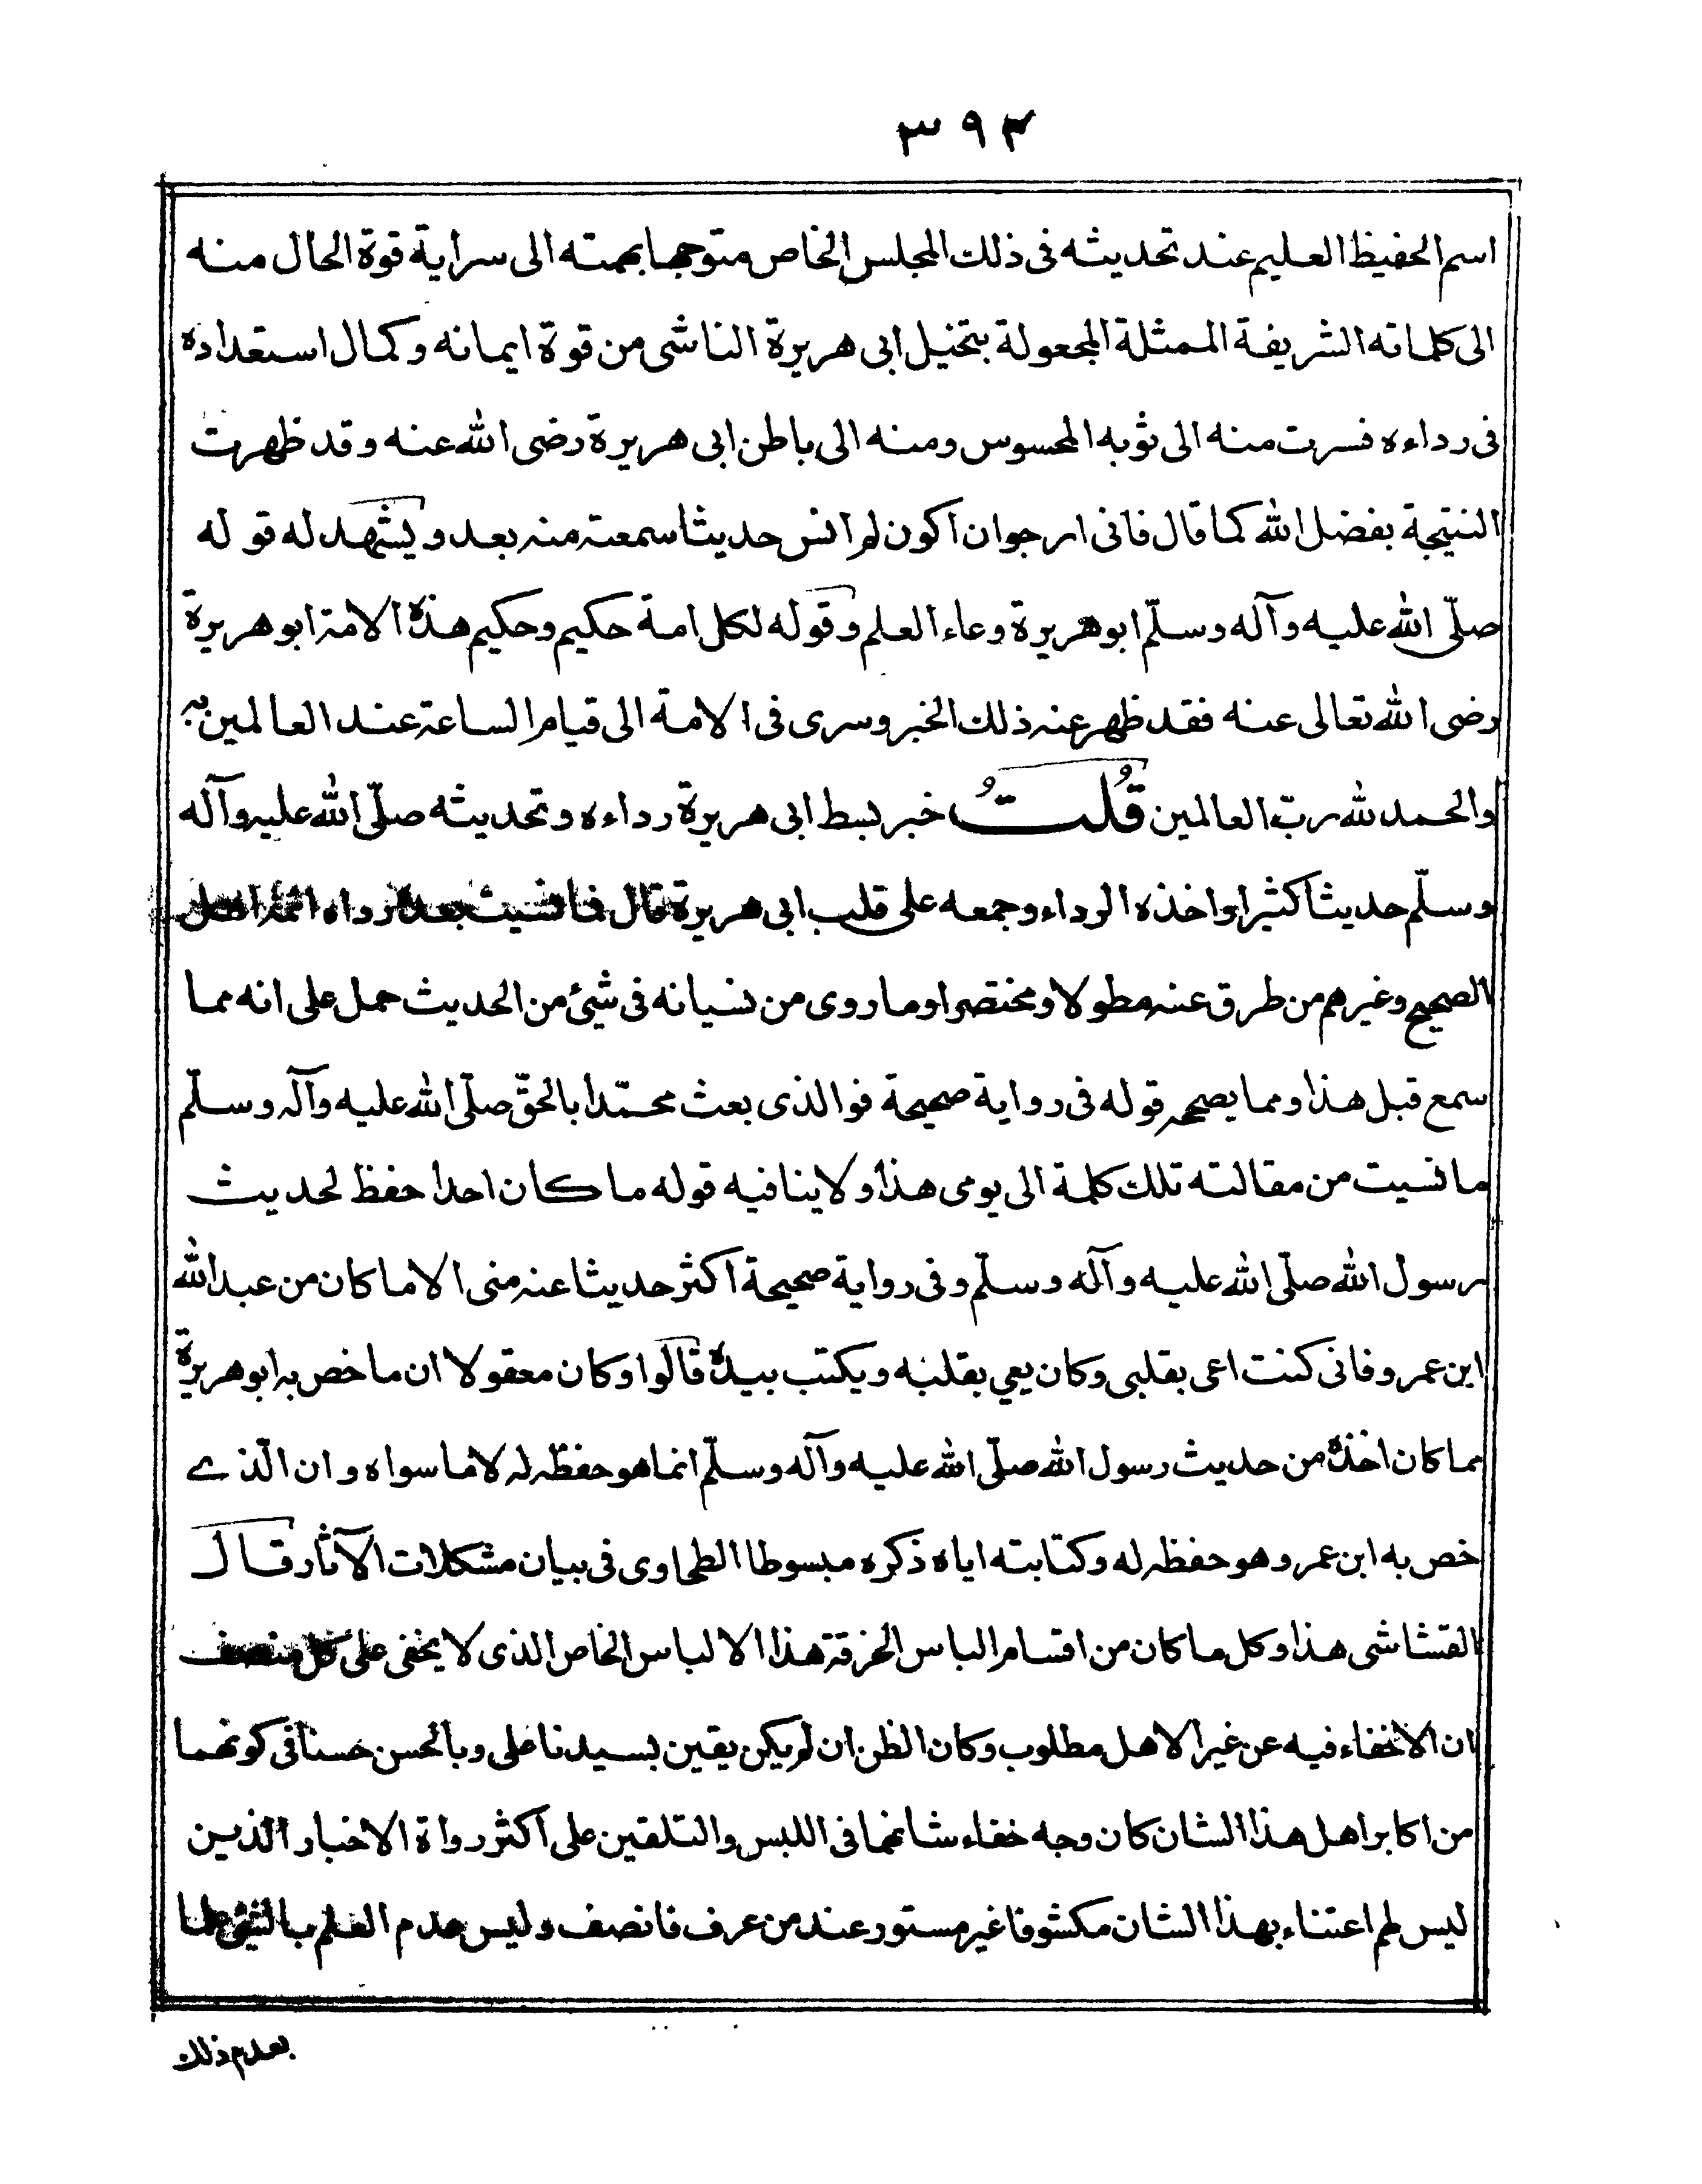 ٣٩٣
اسم الحفيظ العليم عند تحديثه فى ذلك المجلس الخاص متوجها بهمته الى سراية قوة الحال منه
الى كلماته الشريفة الممثلة المجعولة بتخيل ابى هريرة الناشى من قوة ايمانه وكمال استعداده
فى رداءه فسرت منه الى ثوبه المحسوس ومنه الى باطن ابى هريرة رضى الله عنه وقد ظهرت
النتيجة بفضل الله كما قال فانى ارجوان اكون لم انس حديثا سمعته منه بعد ويشهد له قوله
صلّى الله عليه وآله وسلّم ابوهريرة وعاء العلم وقوله لكل امة حكيم وحكيم هذه الامة ابوهريرة
رضى الله تعالى عنه فقد ظهر عنه ذلك الخبر وسرى فى الامة الى قيام الساعة عند العالمين به
والحمد لله ربّ العالمين قُلتُ خبر بسط ابى هريرة رداءه وتحديثه صلّى الله عليه وآله
وسلّم حديثا كثيرا واخذه الرداء وجمعه على قلب ابى هريرة قال فما نسيت بعد
الصحيح وغيرهم من طرق عنه مطولا ومختصرا وما روى من نسيانه فى شيئ من الحديث حمل على انه مما
سمع قبل هذا ومما يصححه قوله فى رواية صحيحة فوالذى بعث محمّدا بالحقّ صلّى الله عليه وآله وسلّم
ما نسيت من مقالته تلك كلمة الى يومى هذا ولا ينافيه قوله ما كان احدا حفظ لحديث
رسول الله صلّى الله عليه وآله وسلّم وفى رواية صحيحة اكثر حديثا عنه منى الا ما كان من عبد الله
ابن عمر وفانى كنت اعى بقلبى وكان يعي بقلبه ويكتب بيده قالوا وكان معقولا ان ما خص به ابوهريرة
مما كان اخذه من حديث رسول الله صلّى الله عليه وآله وسلّم انما هو حفظه له لا ما سواه وان الّذے
خص به ابن عمر وهو حفظه له وكتابته اياه ذكره مبسوطا الطحاوى فى بيان مشكلات الآثار قال
القشاشى هذا وكل ما كان من اقسام الباس الخرقة هذا الالباس الخاص الذى لا يخفى على كل منصف
ان الاخفاء فيه عن غير الاهل مطلوب وكان الظن ان لم يكن يقين بسيدنا على وبالحسن حسنا فى كونهما
من اكابر اهل هذا الشان كان وجه خفاء شانهما فى اللبس والتلقين على اكثر رواة الاخبار الذين
ليس لهم اعتناء بهذا الشان مكشوفا غير مستور عند من عرف فانصف وليس عدم العلم بالشيئ علما
بعدم ذلك